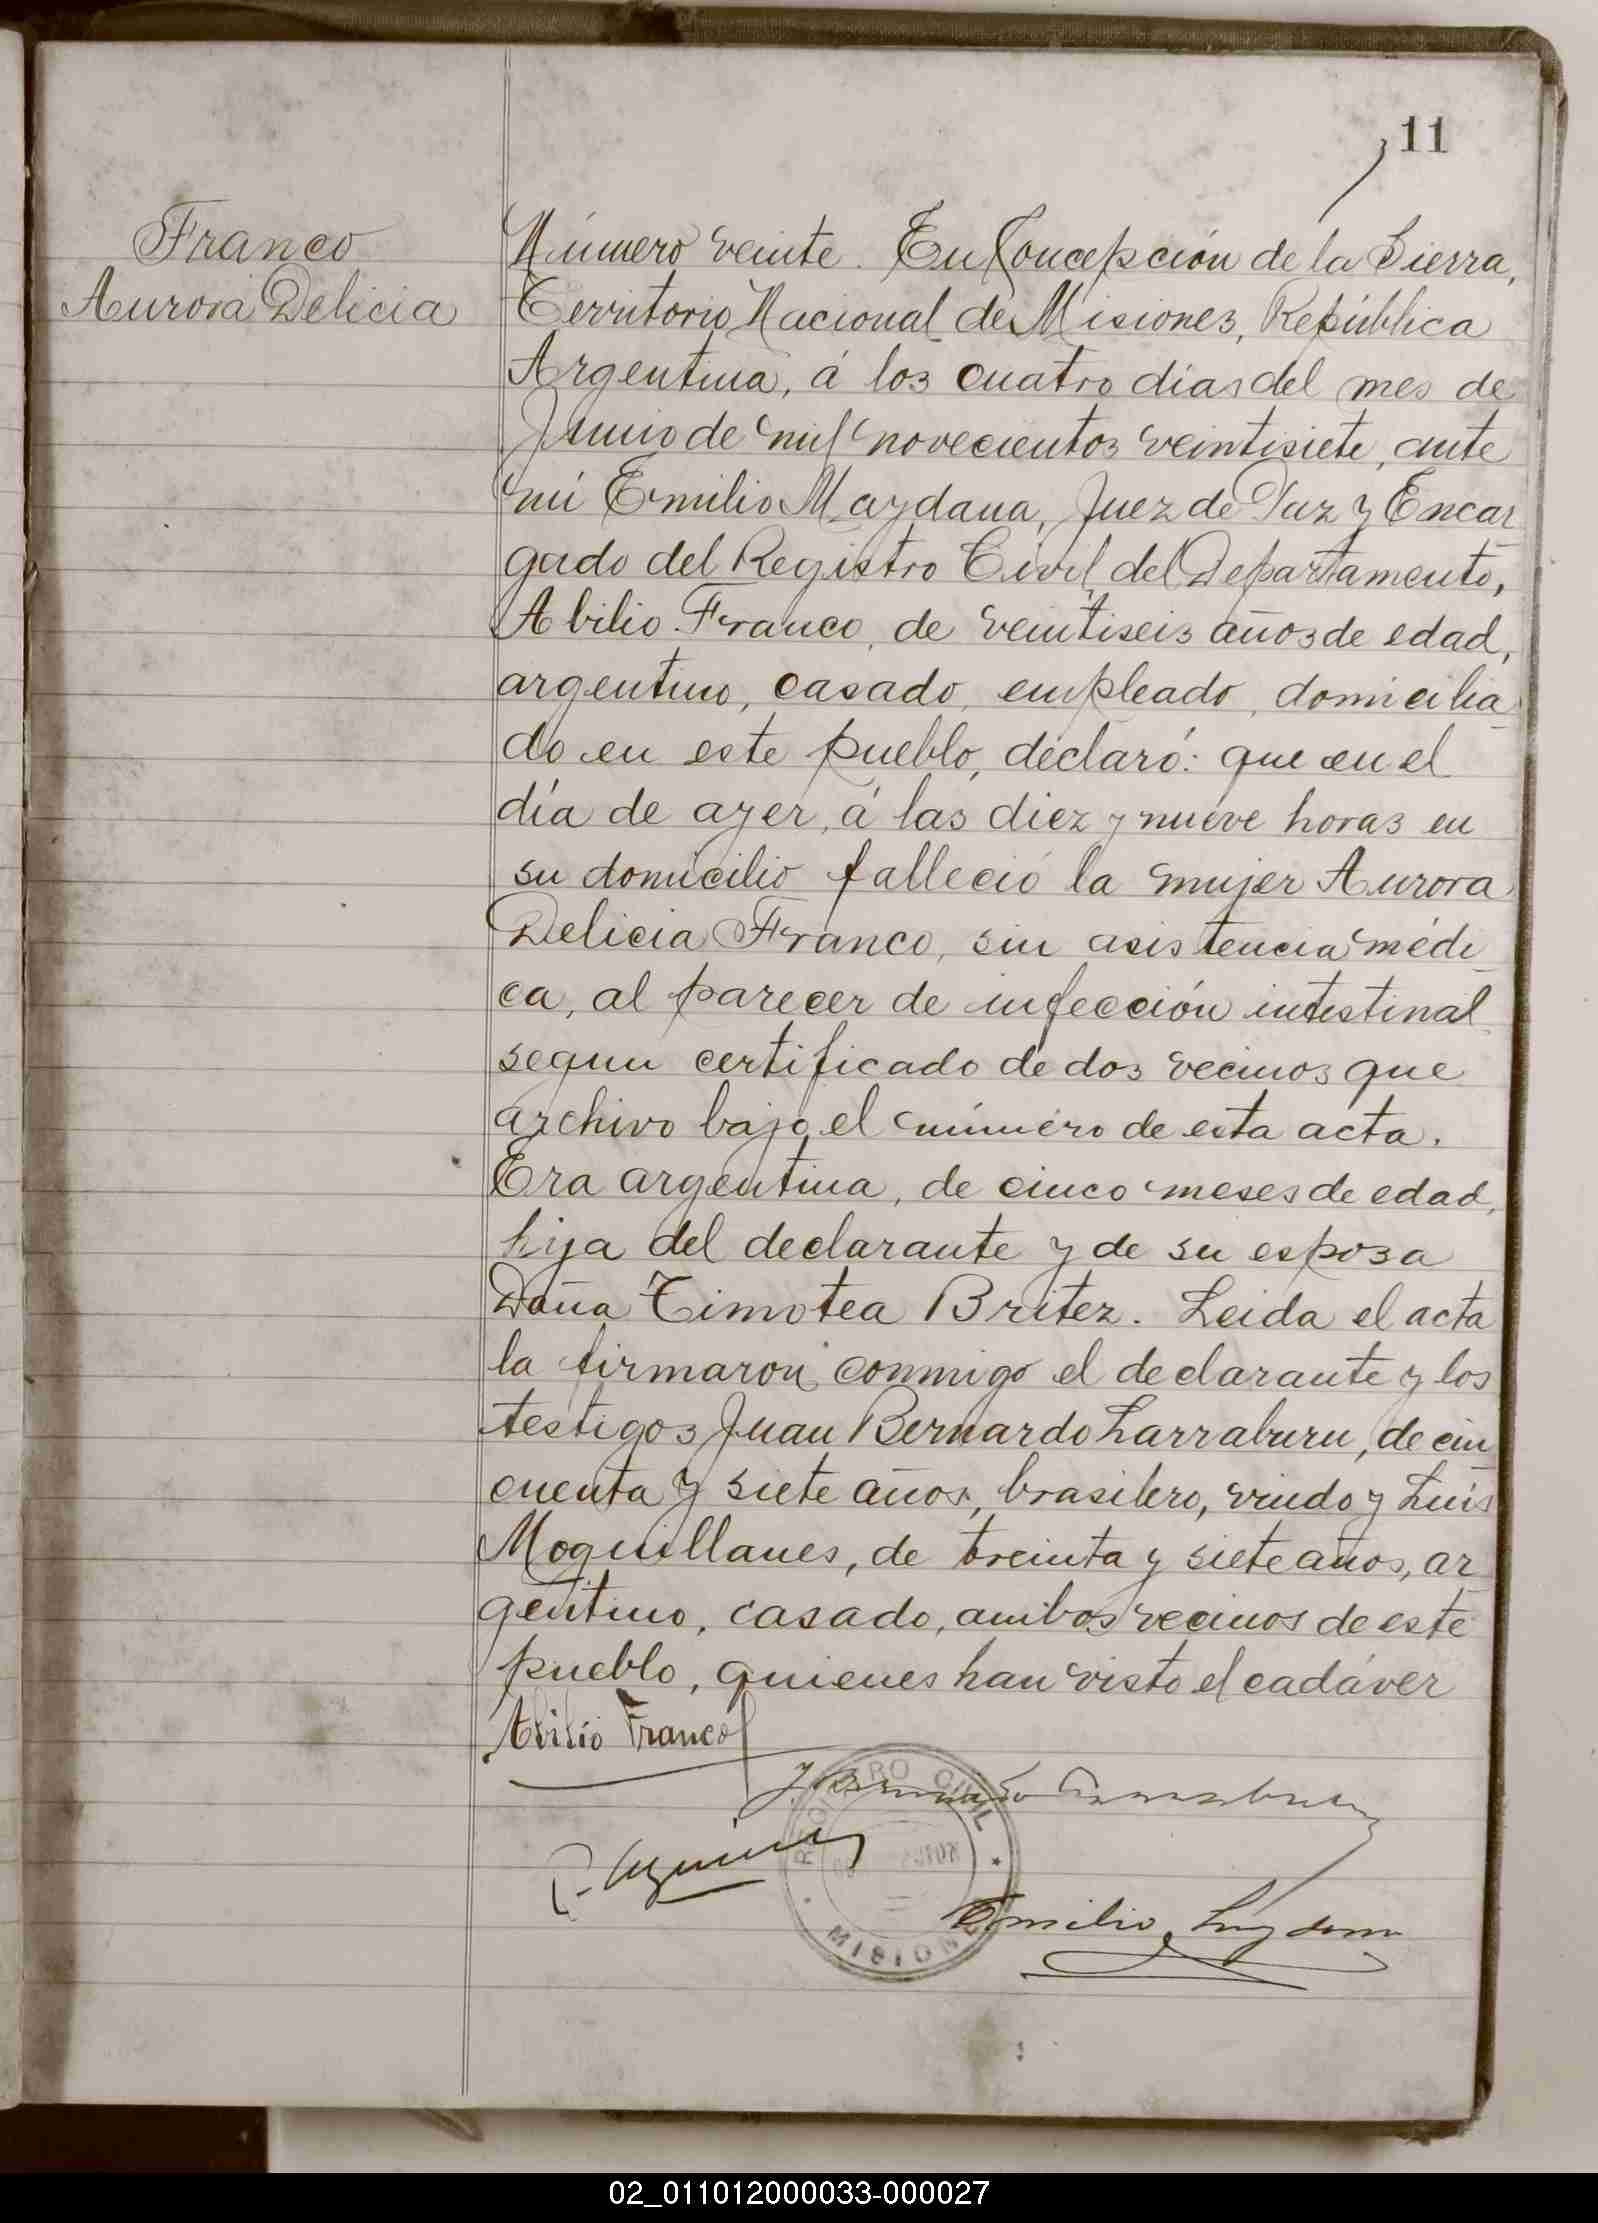 11
Franco
Aurora Delicia
Número veinte. En Concepción de la Sierra,
Territorio Nacional de Misiones, República
Argentina, á los cuatro días del mes de
Junio de mil novecientos veintisiete, ante
mi Emilio Maydana, Juez de Paz y Encar
gado del Registro Civil del Departamento,
Abilio Franco, de veintiseis años de edad,
argentino, casado, empleado, domicilia
do en este pueblo, declaró: que en el
día de ayer, á las diez y nueve horas en
su domicilio falleció la mujer Aurora
Delicia Franco, sin asistencia médi
ca, al parecer de infección intestinal
segun certificado de dos vecinos que
archivo bajo el número de esta acta.
Era argentina, de cinco meses de edad,
hija del declarante y de su esposa
Doña Timotea Britez. Leida el acta
la firmaron conmigo el declarante y los
testigos Juan Bernardo Larraburu, de cin
cuenta y siete años, brasilero, viudo y Luis
Moquillanes, de treinta y siete años, ar
gentino, casado, ambos vecinos de este
pueblo, quienes han visto el cadáver
Abilio Franco
REGISTRO CIVIL
MISIONES
Emilio
02_011012000033-000027